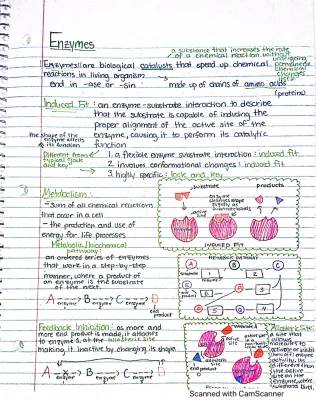 Enzymes
a substance that increases the rate
of a chemical reaction without
undergoing
permanent
chemical
changes
Enzymes: are biological catalysts that speed up chemical
reactions in living organism
end in -ase or -sin
made up of chains of amino acids
(proteins)
Induced Fit: an enzyme-substrate interaction to describe
that the substrate is capable of inducing the
proper alignment of the active site of the
enzyme, causing it to perform its catalytic
function
the shape of the
enzyme affects
its function
Different from
typical "lock
and key"
1. a flexible enzyme substrate interaction: induced fit
2. involves conformational changes: induced fit
3. highly specific: lock and key
Metabolism:
-sum of all chemical reactions
that occur in a cell
- the production and use of
energy for life processes
Metabolic/biochemical
pathways:
an ordered series of enzymes
that work in a step-by-step
manner, where a product of
an enzyme is the substrate
of the next.
A B C D
enzyme enzyme enzyme
end
product
substrate
products
enzyme
changes shape
slightly as
substrate binds
active
site
INDUCED FIT
A B C
1 2
5 4 3
Feedback Inhibition: as more and
more end product is made, it attaches
to enzyme 1, at the allosteric site
making it inactive by changing its shape.
A B C D
enzyme enzyme enzyme
end product
Allosteric Site:
a site that
allows
molecules to
activity. Its
different than
the active
site on the
enzyme, where
substrates bind.
Scanned with CamScanner